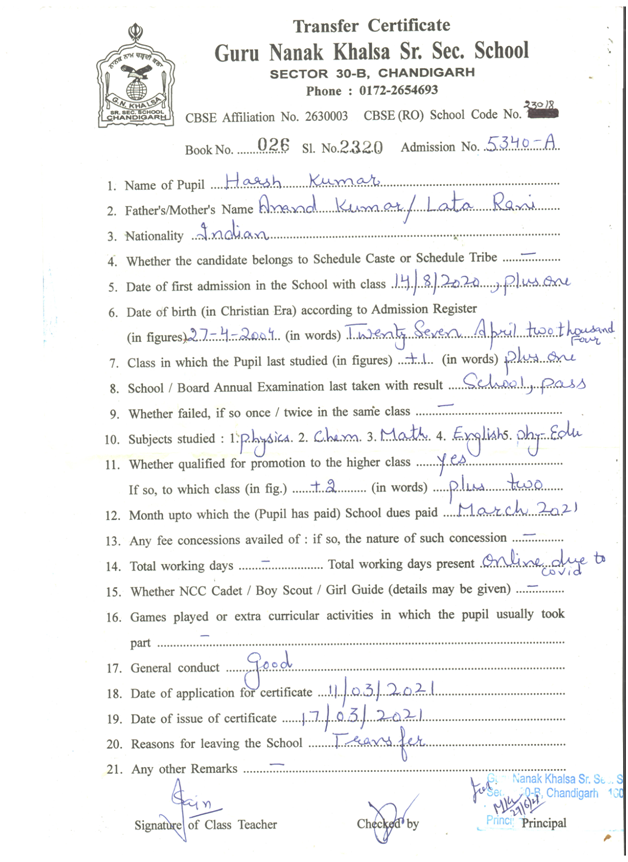 Transfer Certificate
Guru Nanak Khalsa Sr. Sec. School
SECTOR 30-B, CHANDIGARH
Phone : 0172-2654693
G.N. KHALSA
SR. SEC. SCHOOL
CHANDIGARH
23018
CBSE Affiliation No. 2630003 CBSE (RO) School Code No.
Book No. 026 Sl. No. 2320 Admission No. 5340-A
1. Name of Pupil Harsh Kumar
2. Father's/Mother's Name Anand Kumar/ Lata Rani
3. Nationality Indian
4. Whether the candidate belongs to Schedule Caste or Schedule Tribe —
5. Date of first admission in the School with class 14/8/2020, plus one
6. Date of birth (in Christian Era) according to Admission Register
(in figures) 27-4-2004 (in words) Twenty Seven April two thousand Four
7. Class in which the Pupil last studied (in figures) +1 (in words) plus one
8. School / Board Annual Examination last taken with result School, pass
9. Whether failed, if so once / twice in the same class —
10. Subjects studied : 1. Physics 2. Chem 3. Math 4. English 5. Phy Edu
11. Whether qualified for promotion to the higher class yes
If so, to which class (in fig.) +2 (in words) plus two
12. Month upto which the (Pupil has paid) School dues paid March 2021
13. Any fee concessions availed of : if so, the nature of such concession —
14. Total working days — Total working days present Online due to Covid
15. Whether NCC Cadet / Boy Scout / Girl Guide (details may be given) —
16. Games played or extra curricular activities in which the pupil usually took
part —
17. General conduct good
18. Date of application for certificate 11/03/2021
19. Date of issue of certificate 17/03/2021
20. Reasons for leaving the School Transfer
21. Any other Remarks —
Nanak Khalsa Sr.
30-B, Chandigarh
Signature of Class Teacher Checked by Principal